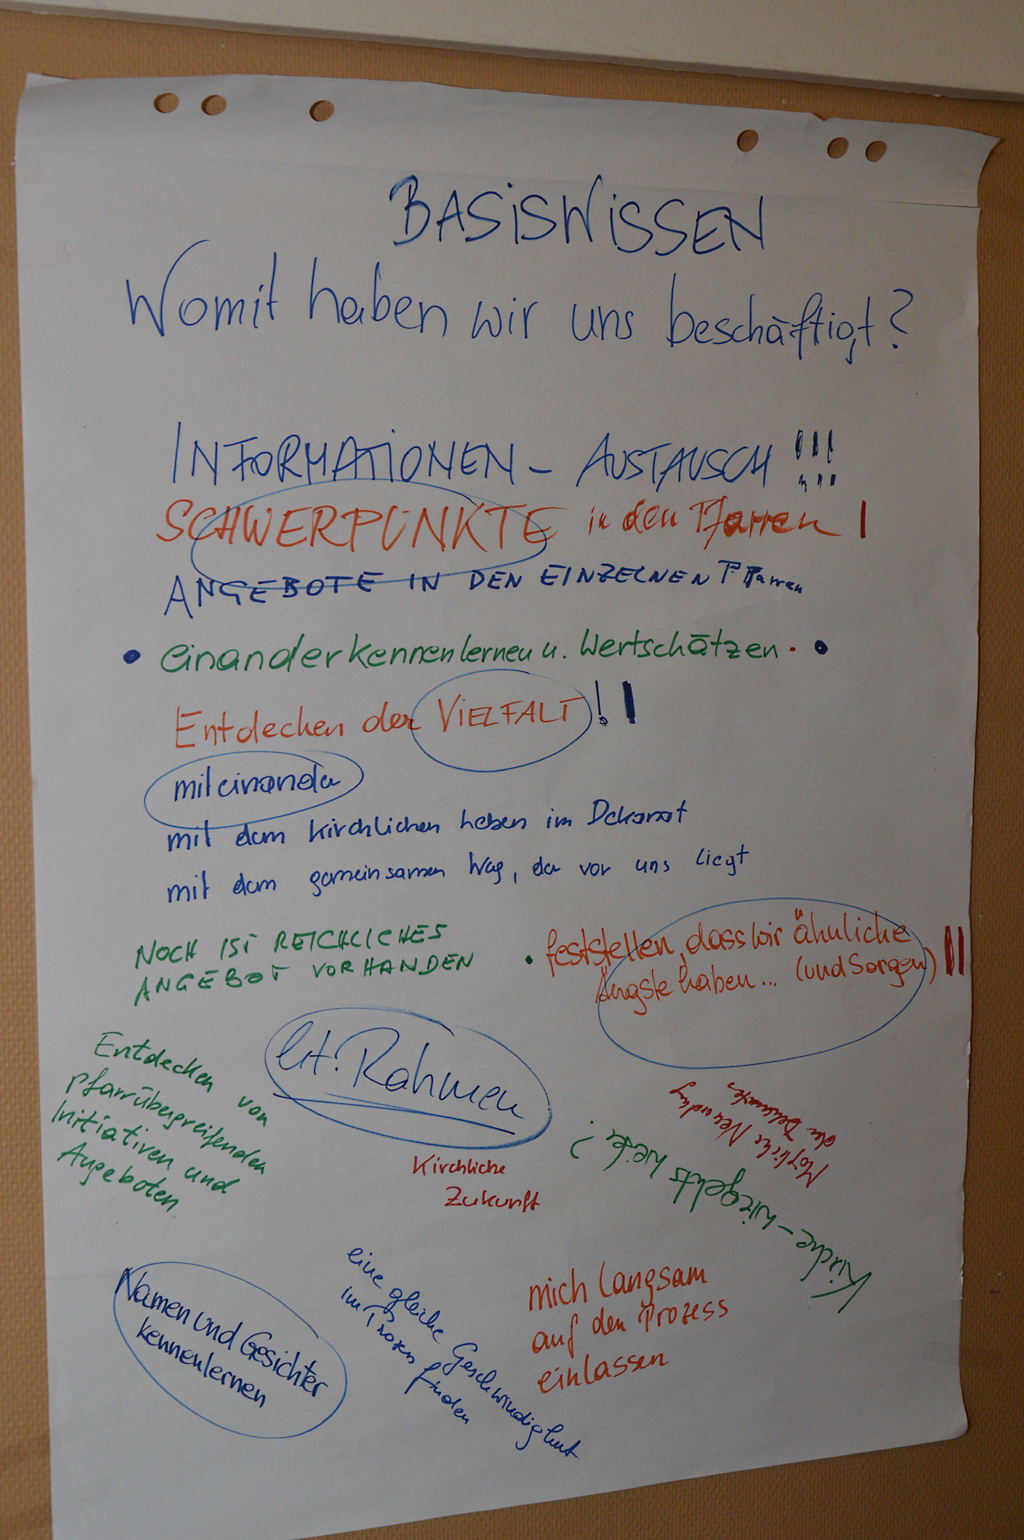 BASISWISSEN
Womit haben wir uns beschäftigt?
INFORMATIONEN - AUSTAUSCH !!!
SCHWERPUNKTE in den Pfarren !
ANGEBOTE IN DEN EINZELNEN Pfarren
• einander kennenlernen u. Wertschätzen • •
Entdecken der VIELFALT !!
miteinander
mit dem kirchlichen Leben im Dekanat
mit dem gemeinsamen Weg, der vor uns liegt
NOCH IST REICHLICHES
ANGEBOT VORHANDEN
• feststellen, dass wir ähnliche
Ängste haben... (und Sorgen) !!
Entdecken von
pfarrübergreifenden
Initiativen und
Angeboten
Rahmen
Kirchliche
Zukunft
Mögliche
der Dekanate
Kirche - wie geht's weiter?
Namen und Gesichter
kennenlernen
eine gleiche Geschwindigkeit
im Prozess finden
mich langsam
auf den Prozess
einlassen